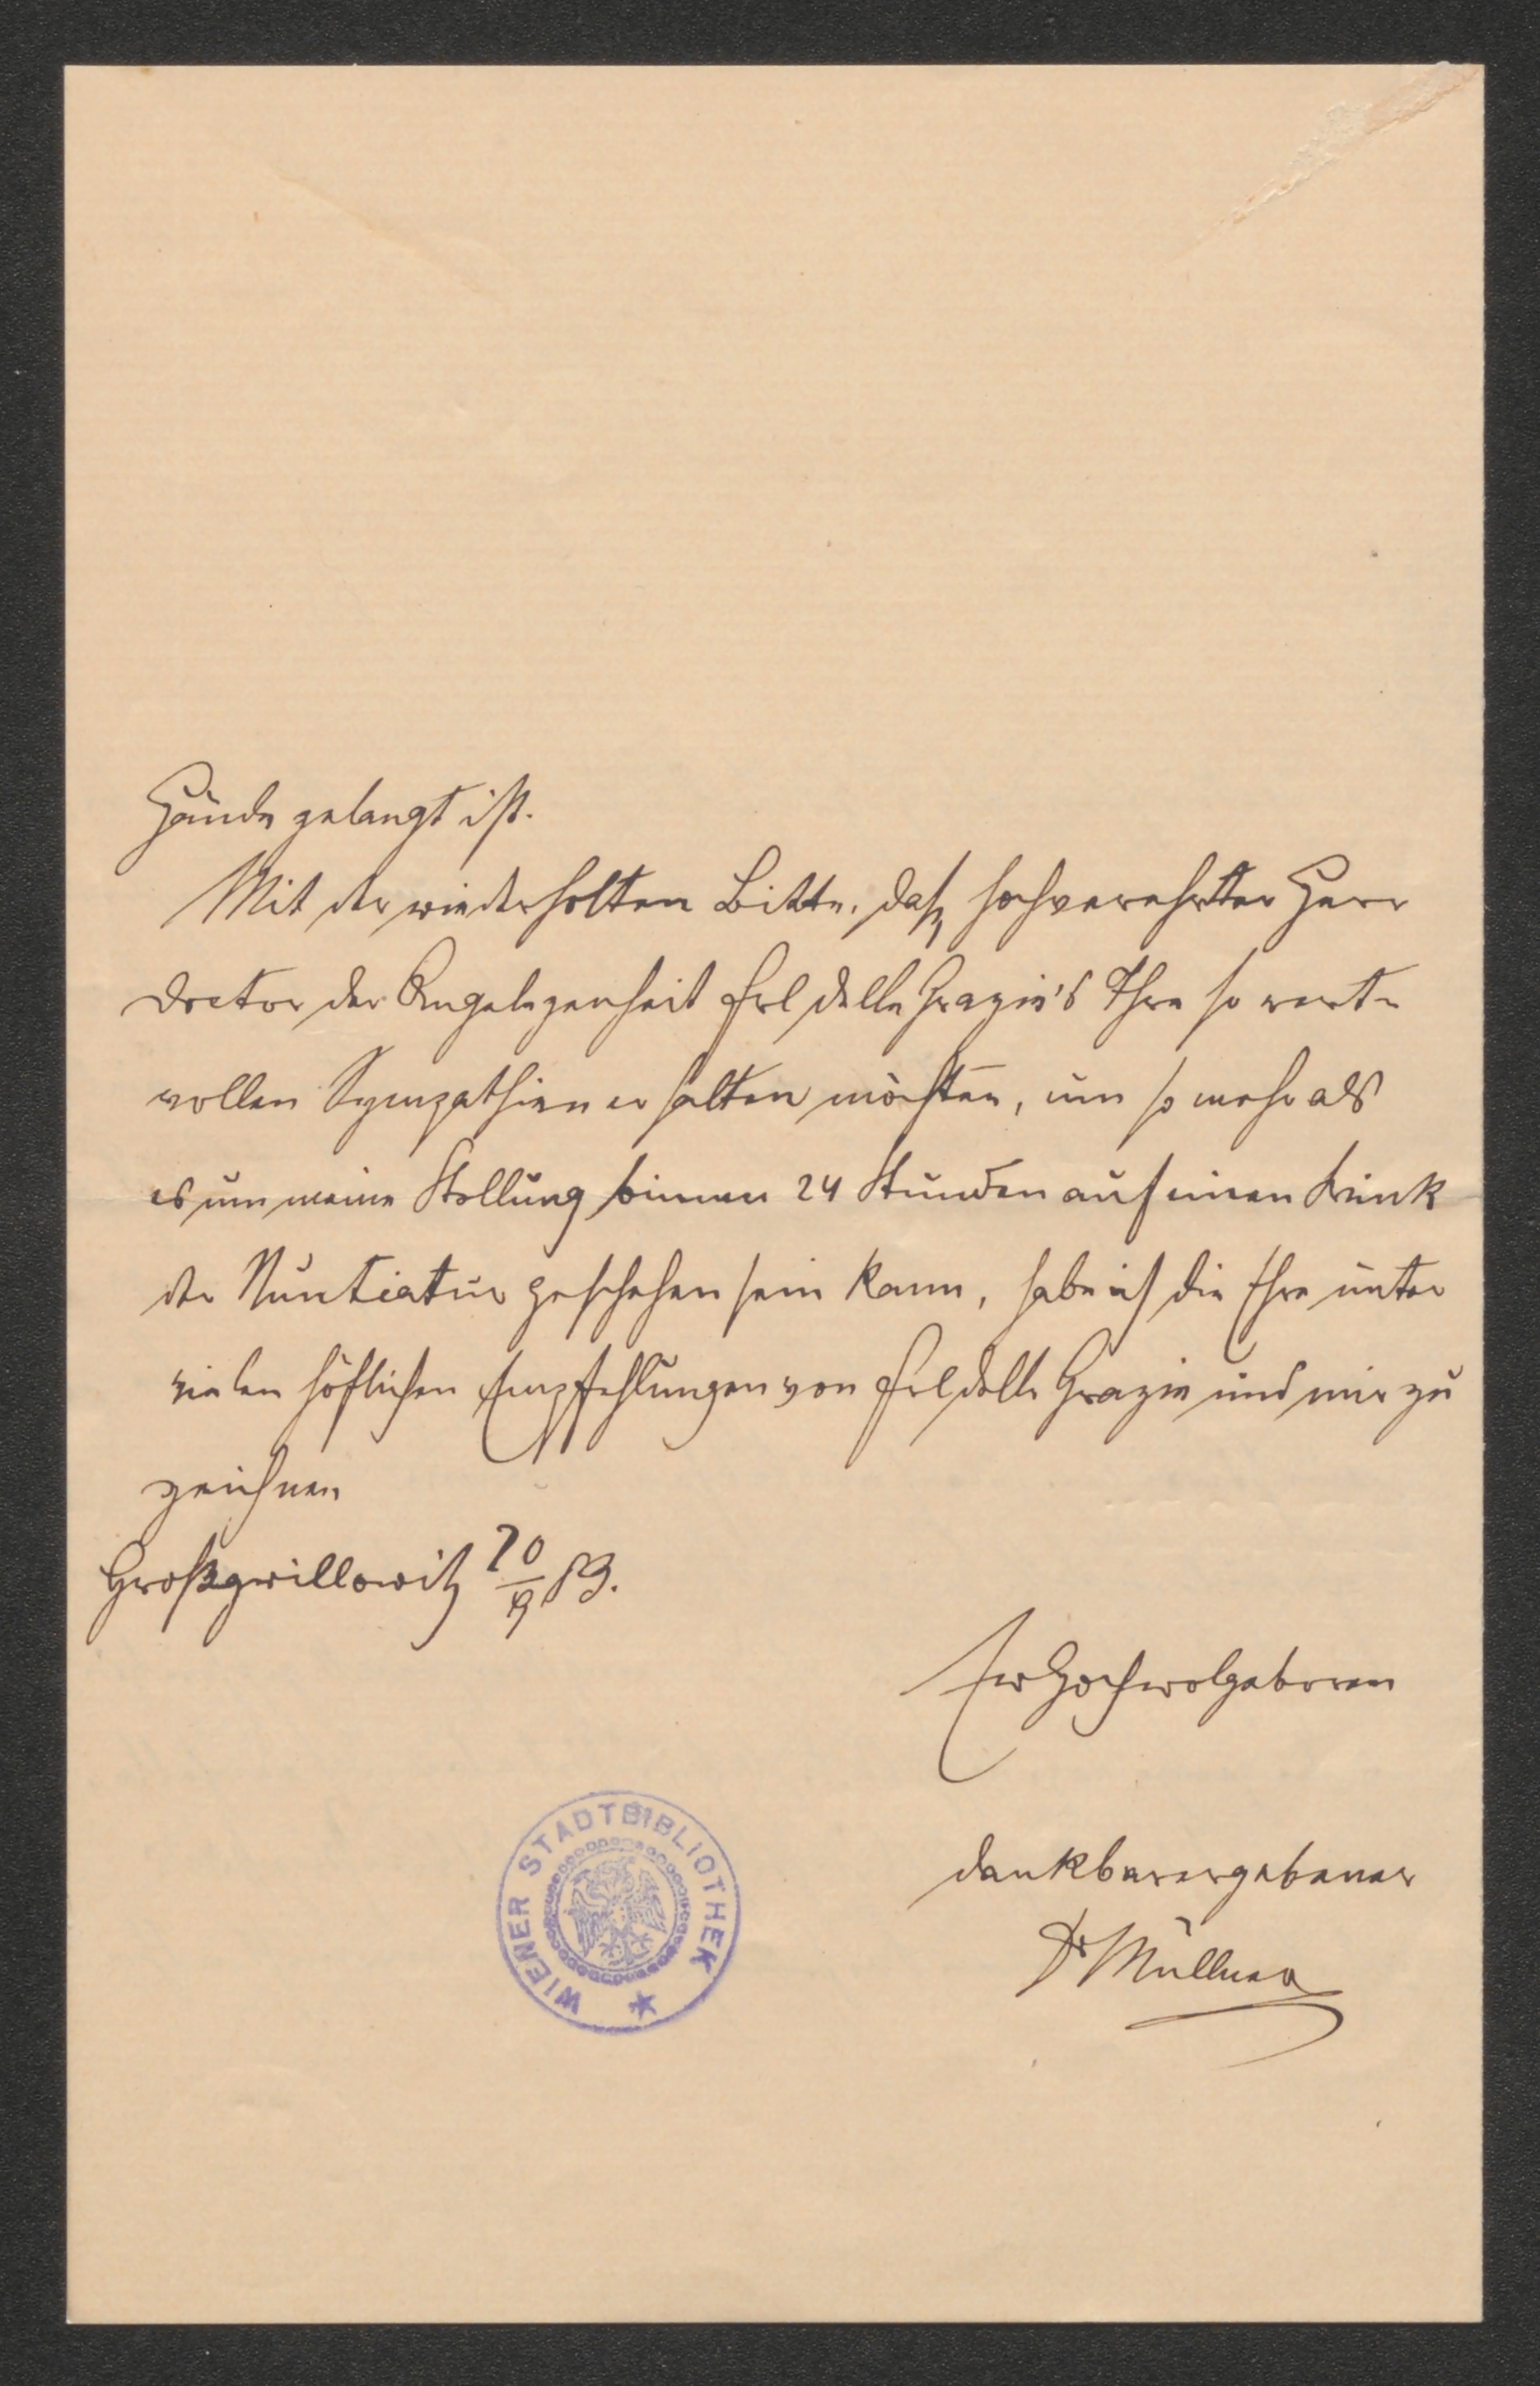 Hände gelangt ist.
Mit der wiederholten Bitte, daß hochverehrter Herr
Doctor der Angelegenheit Frl delle Grazie's Ihre so wert-
vollen Sympathien erhalten möchten, um so mehr als
es um meine Stellung binnen 24 Stunden auf einen Wink
der Nuntiatur geschehen sein kann, habe ich die Ehre unter
vielen höflichen Empfehlungen von Frl delle Grazie und mir zu
zeichnen
Ew Hochwolgeboren
dankbarergebener
Dr Müllner
WIENER STADTBIBLIOTHEK